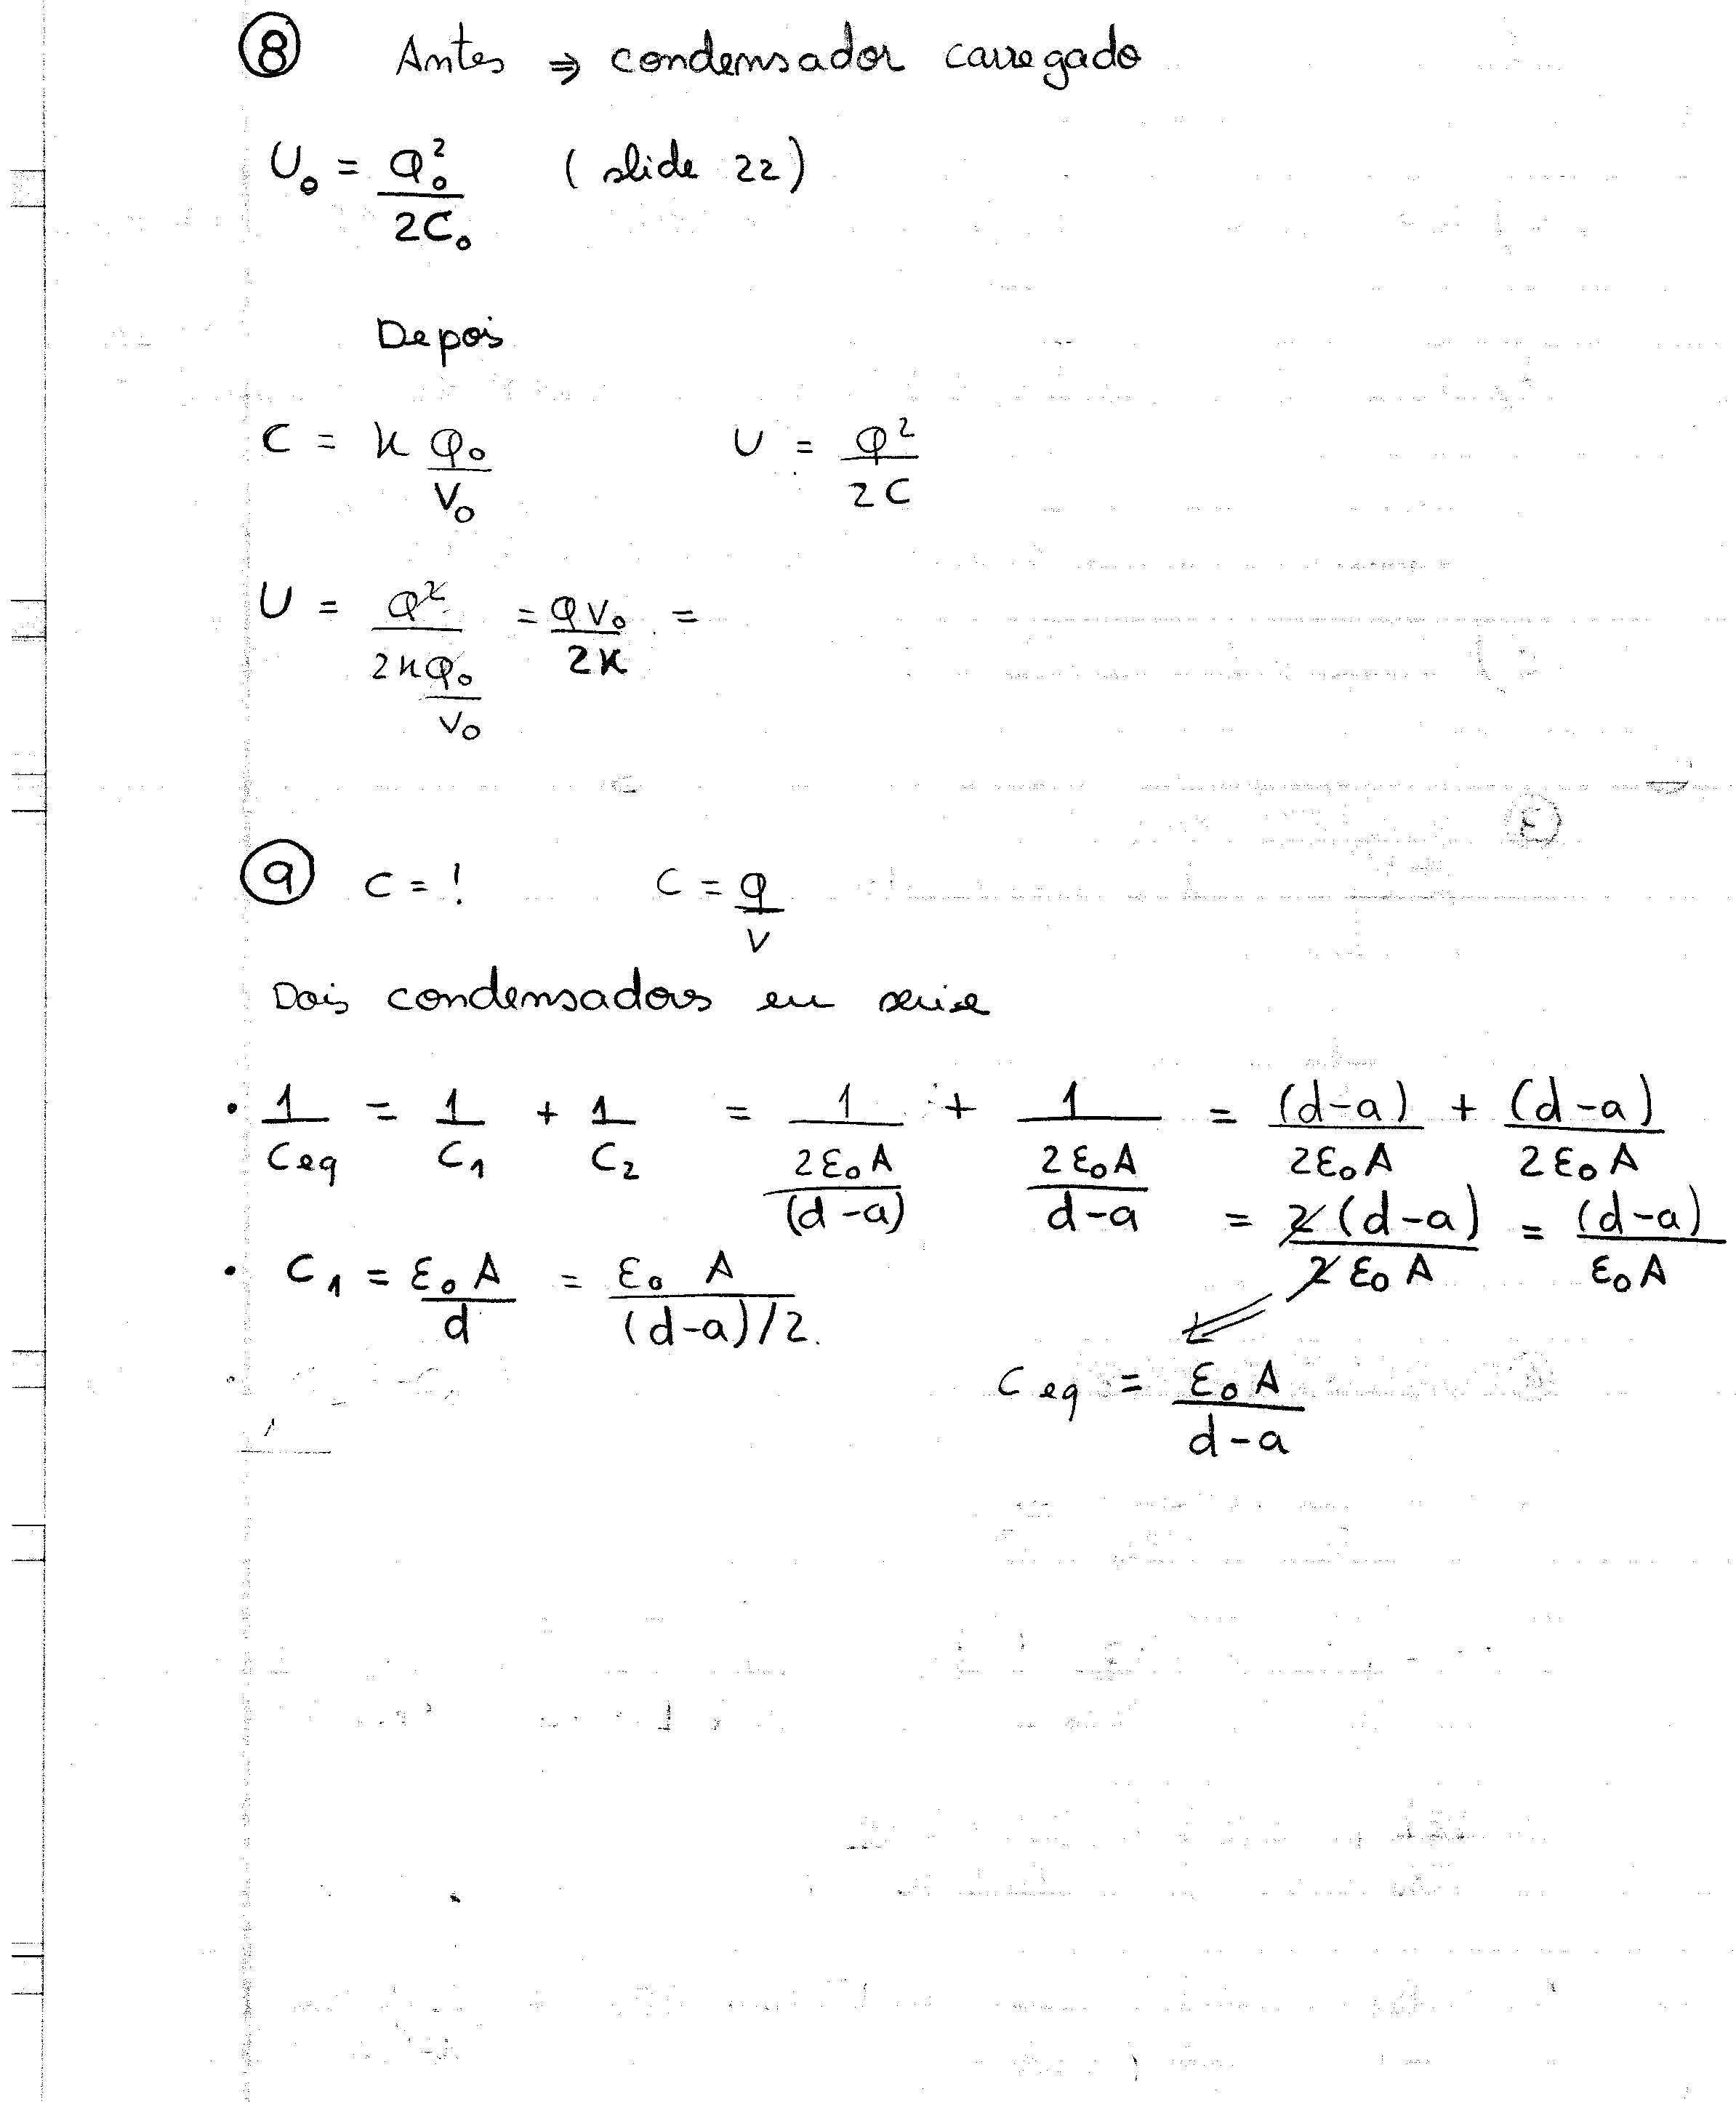 ⑧ Antes ⇒ condensador carregado
U₀ = Q₀² / 2C₀ (slide 22)
Depois
C = κ Q₀ / V₀     U = Q² / 2C
U = Q² / (2κQ₀ / V₀) = QV₀ / 2κ =
⑨ C = !     C = q / V
Dois condensadores em série
• 1/Ceq = 1/C₁ + 1/C₂ = 1 / (2ε₀A / (d-a)) + 1 / (2ε₀A / d-a) = (d-a) / 2ε₀A + (d-a) / 2ε₀A
= 2(d-a) / 2ε₀A = (d-a) / ε₀A
• C₁ = ε₀A / d = ε₀ A / (d-a)/2.
Ceq = ε₀A / d-a